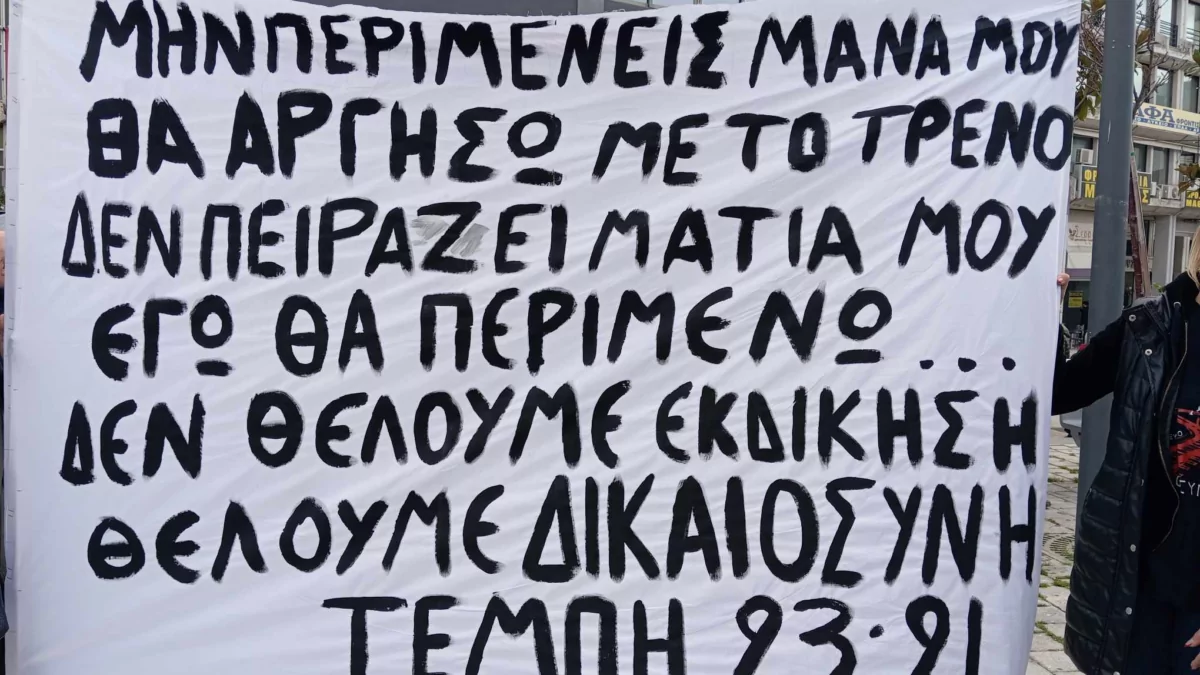 ΜΗΝ ΠΕΡΙΜΕΝΕΙΣ ΜΑΝΑ ΜΟΥ
ΘΑ ΑΡΓΗΣΩ ΜΕ ΤΟ ΤΡΕΝΟ
ΔΕΝ ΠΕΙΡΑΖΕΙ ΜΑΤΙΑ ΜΟΥ
ΕΓΩ ΘΑ ΠΕΡΙΜΕΝΩ...
ΔΕΝ ΘΕΛΟΥΜΕ ΕΚΔΙΚΗΣΗ
ΘΕΛΟΥΜΕ ΔΙΚΑΙΟΣΥΝΗ
ΤΕΜΠΗ 93·91